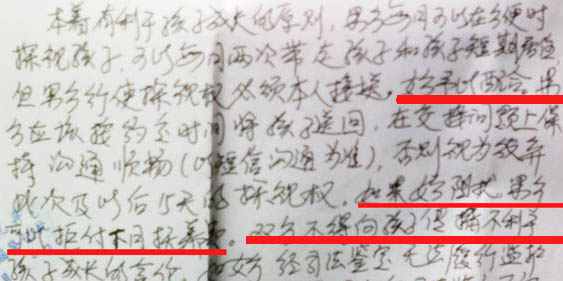 本着有利于孩子成长的原则,男方每周可以在方便时
探视孩子,可以每周两次带走孩子和孩子短期居住,
但男方行使探视权必须本人接送。女方予以配合。男
方应该按约定时间将孩子送回,在交接问题上保
持沟通顺畅(以短信沟通为准),否则视为放弃
此次及以后15天的探视权。如果女方阻扰,男方
可以拒付下月抚养费。双方不得向孩子传播不利于
孩子成长的言论,女方经司法鉴定无法履行监护